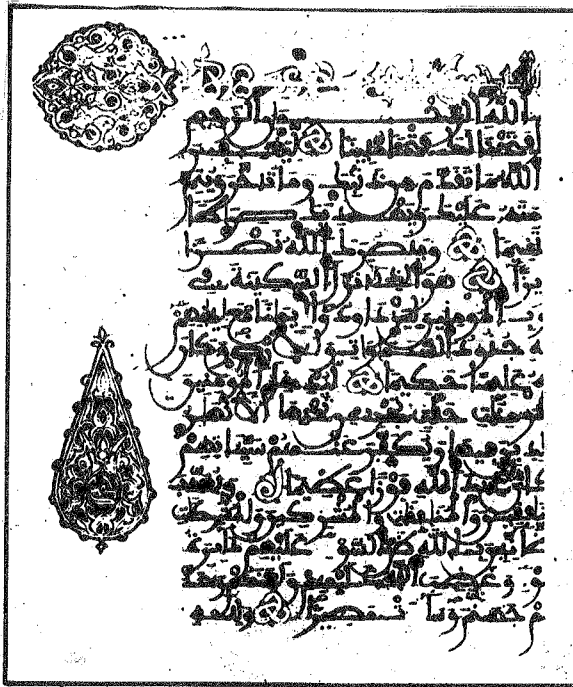 الله الرحمن الرحيم
فتحنا لك فتحا مبينا ليغفر
الله ما تقدم من ذنبك وما تأخر ويتم
مته عليك ويهديك صراطا
تقيما وينصرك الله نصرا
يزا هو الذي أنزل السكينة في
ب المؤمنين ليزدادوا إيمانا مع إيمانهم
ه جنود السموات والأرض وكان
ه عليما حكيما ليدخل المؤمنين
ؤمنات جنات تجري من تحتها الأنهار
لدين فيها ويكفر عنهم سيئاتهم
كان ذلك عند الله فوزا عظيما ويعذب
نافقين والمنافقات والمشركين والمشركات
الظانين بالله ظن السوء عليهم دائرة
وء وغضب الله عليهم ولعنهم وأعد
م جهنم وساءت مصيرا ولله